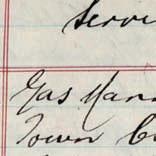 Servi
Gas Man
Town C